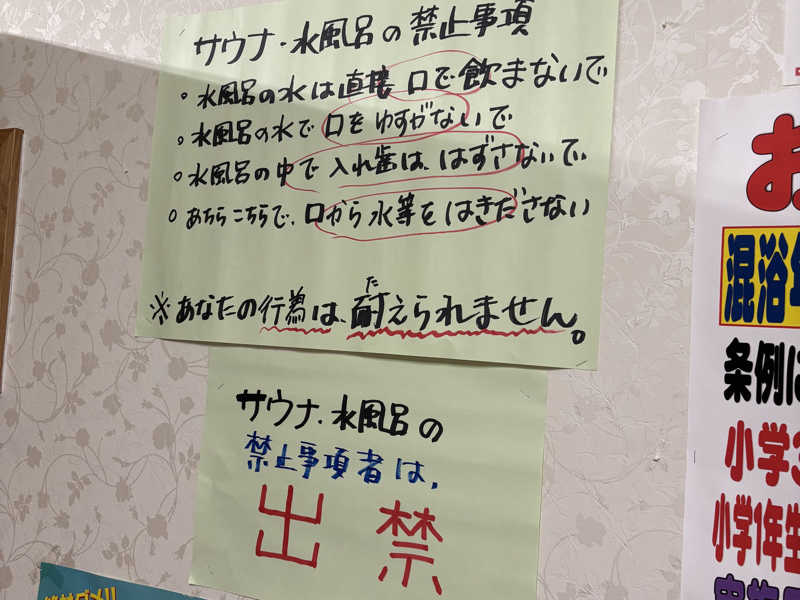 サウナ・水風呂の禁止事項
○ 水風呂の水は直接 口で飲まないで
○ 水風呂の水で 口を ゆすがないで
○ 水風呂の中で 入れ歯は、はずさないで、
○ あちらこちらで、口から水等をはきださない
※ あなたの行為は、耐えられません。
た
サウナ・水風呂の
禁止事項者は、
出禁
お
混浴
条例は
小学3
小学1年生